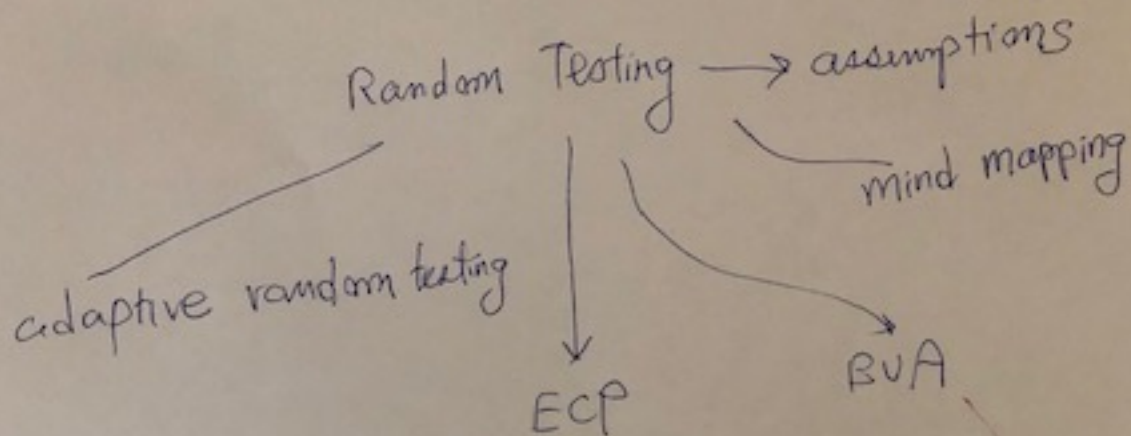 Random Testing → assumptions
mind mapping
adaptive random testing
ECP
BVA